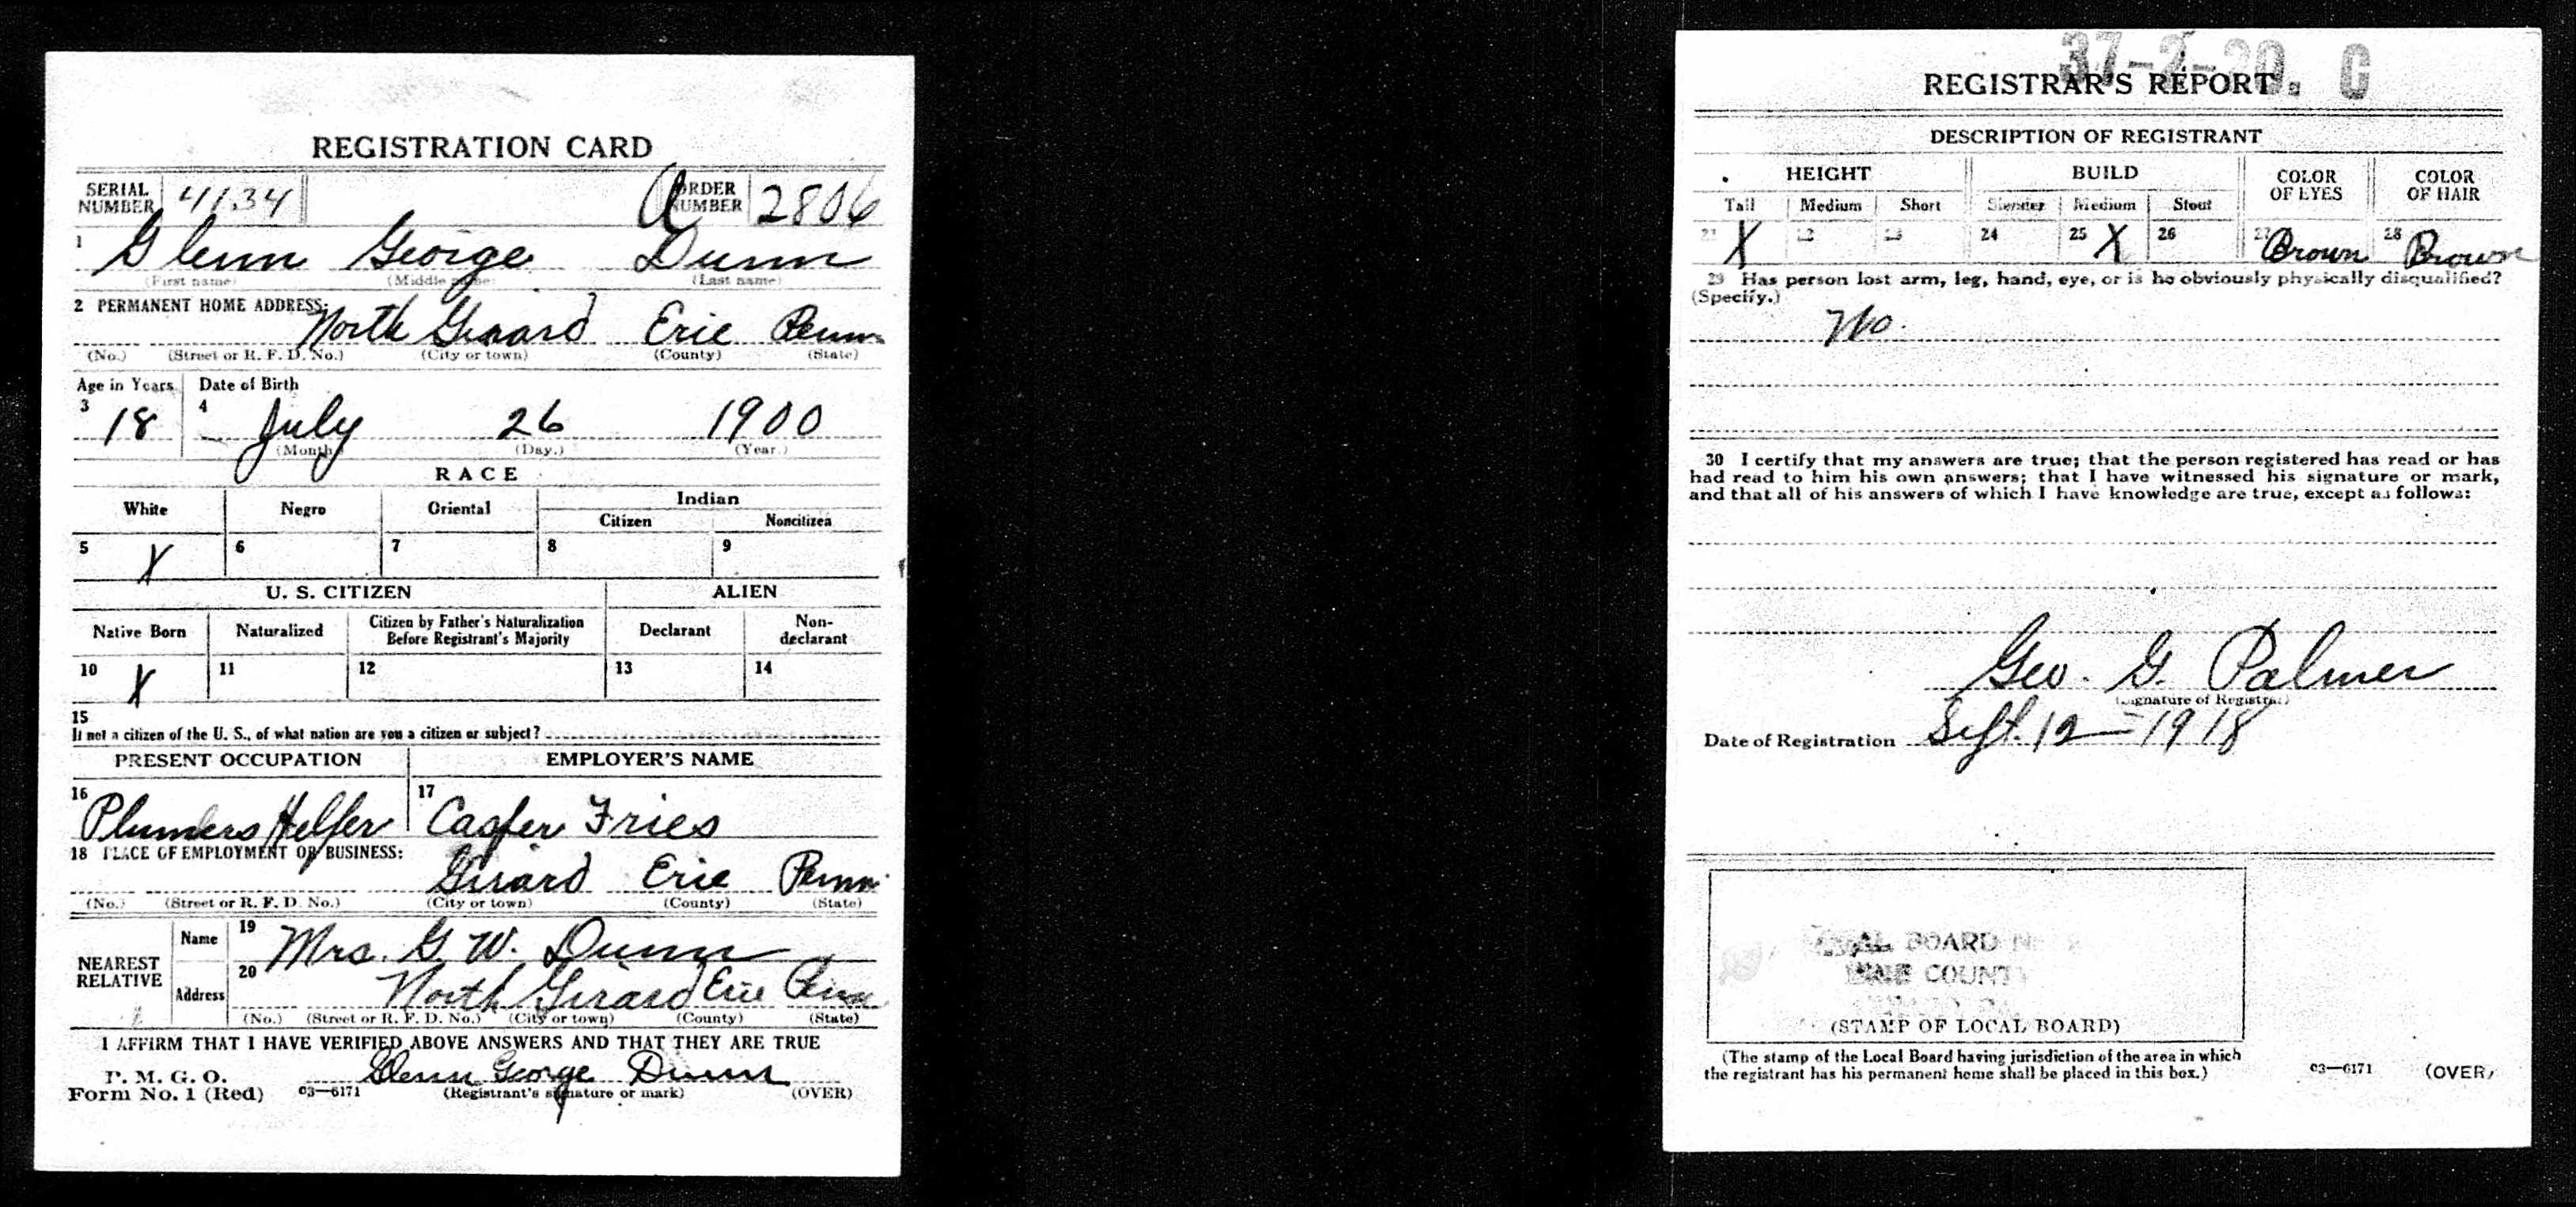 REGISTRATION CARD
SERIAL NUMBER 4134 A ORDER NUMBER 2806
1 Glenn George Dunn
(First name) (Middle name) (Last name)
2 PERMANENT HOME ADDRESS:
North Girard Erie Penn
(No.) (Street or R. F. D. No.) (City or town) (County) (State)
Age in Years Date of Birth
3 18 4 July 26 1900
(Month) (Day.) (Year.)
RACE
White Negro Oriental Indian
Citizen Noncitizen
5 X 6 7 8 9
U. S. CITIZEN ALIEN
Native Born Naturalized Citizen by Father's Naturalization Before Registrant's Majority Declarant Non-declarant
10 X 11 12 13 14
15
If not a citizen of the U. S., of what nation are you a citizen or subject?
PRESENT OCCUPATION EMPLOYER'S NAME
16 Plumers Helper 17 Casper Fries
18 PLACE OF EMPLOYMENT OR BUSINESS:
Girard Erie Penn.
(No.) (Street or R. F. D. No.) (City or town) (County) (State)
NEAREST RELATIVE Name 19 Mrs. G. W. Dunn
Address 20 North Girard Erie Penn
(No.) (Street or R. F. D. No.) (City or town) (County) (State)
I AFFIRM THAT I HAVE VERIFIED ABOVE ANSWERS AND THAT THEY ARE TRUE
P. M. G. O.
Form No. 1 (Red) 03—6171 Glenn George Dunn
(Registrant's signature or mark) (OVER)
37-2-20. C
REGISTRAR'S REPORT
DESCRIPTION OF REGISTRANT
HEIGHT BUILD COLOR OF EYES COLOR OF HAIR
Tall Medium Short Slender Medium Stout
21 X 22 23 24 25 X 26 27 Brown 28 Brown
29 Has person lost arm, leg, hand, eye, or is he obviously physically disqualified?
(Specify.)
No.
30 I certify that my answers are true; that the person registered has read or has
had read to him his own answers; that I have witnessed his signature or mark,
and that all of his answers of which I have knowledge are true, except as follows:
Geo. G. Palmer
(Signature of Registrar)
Date of Registration Sept. 12—1918
BOARD
COUNTY
(STAMP OF LOCAL BOARD)
(The stamp of the Local Board having jurisdiction of the area in which
the registrant has his permanent home shall be placed in this box.)
03—6171 (OVER)